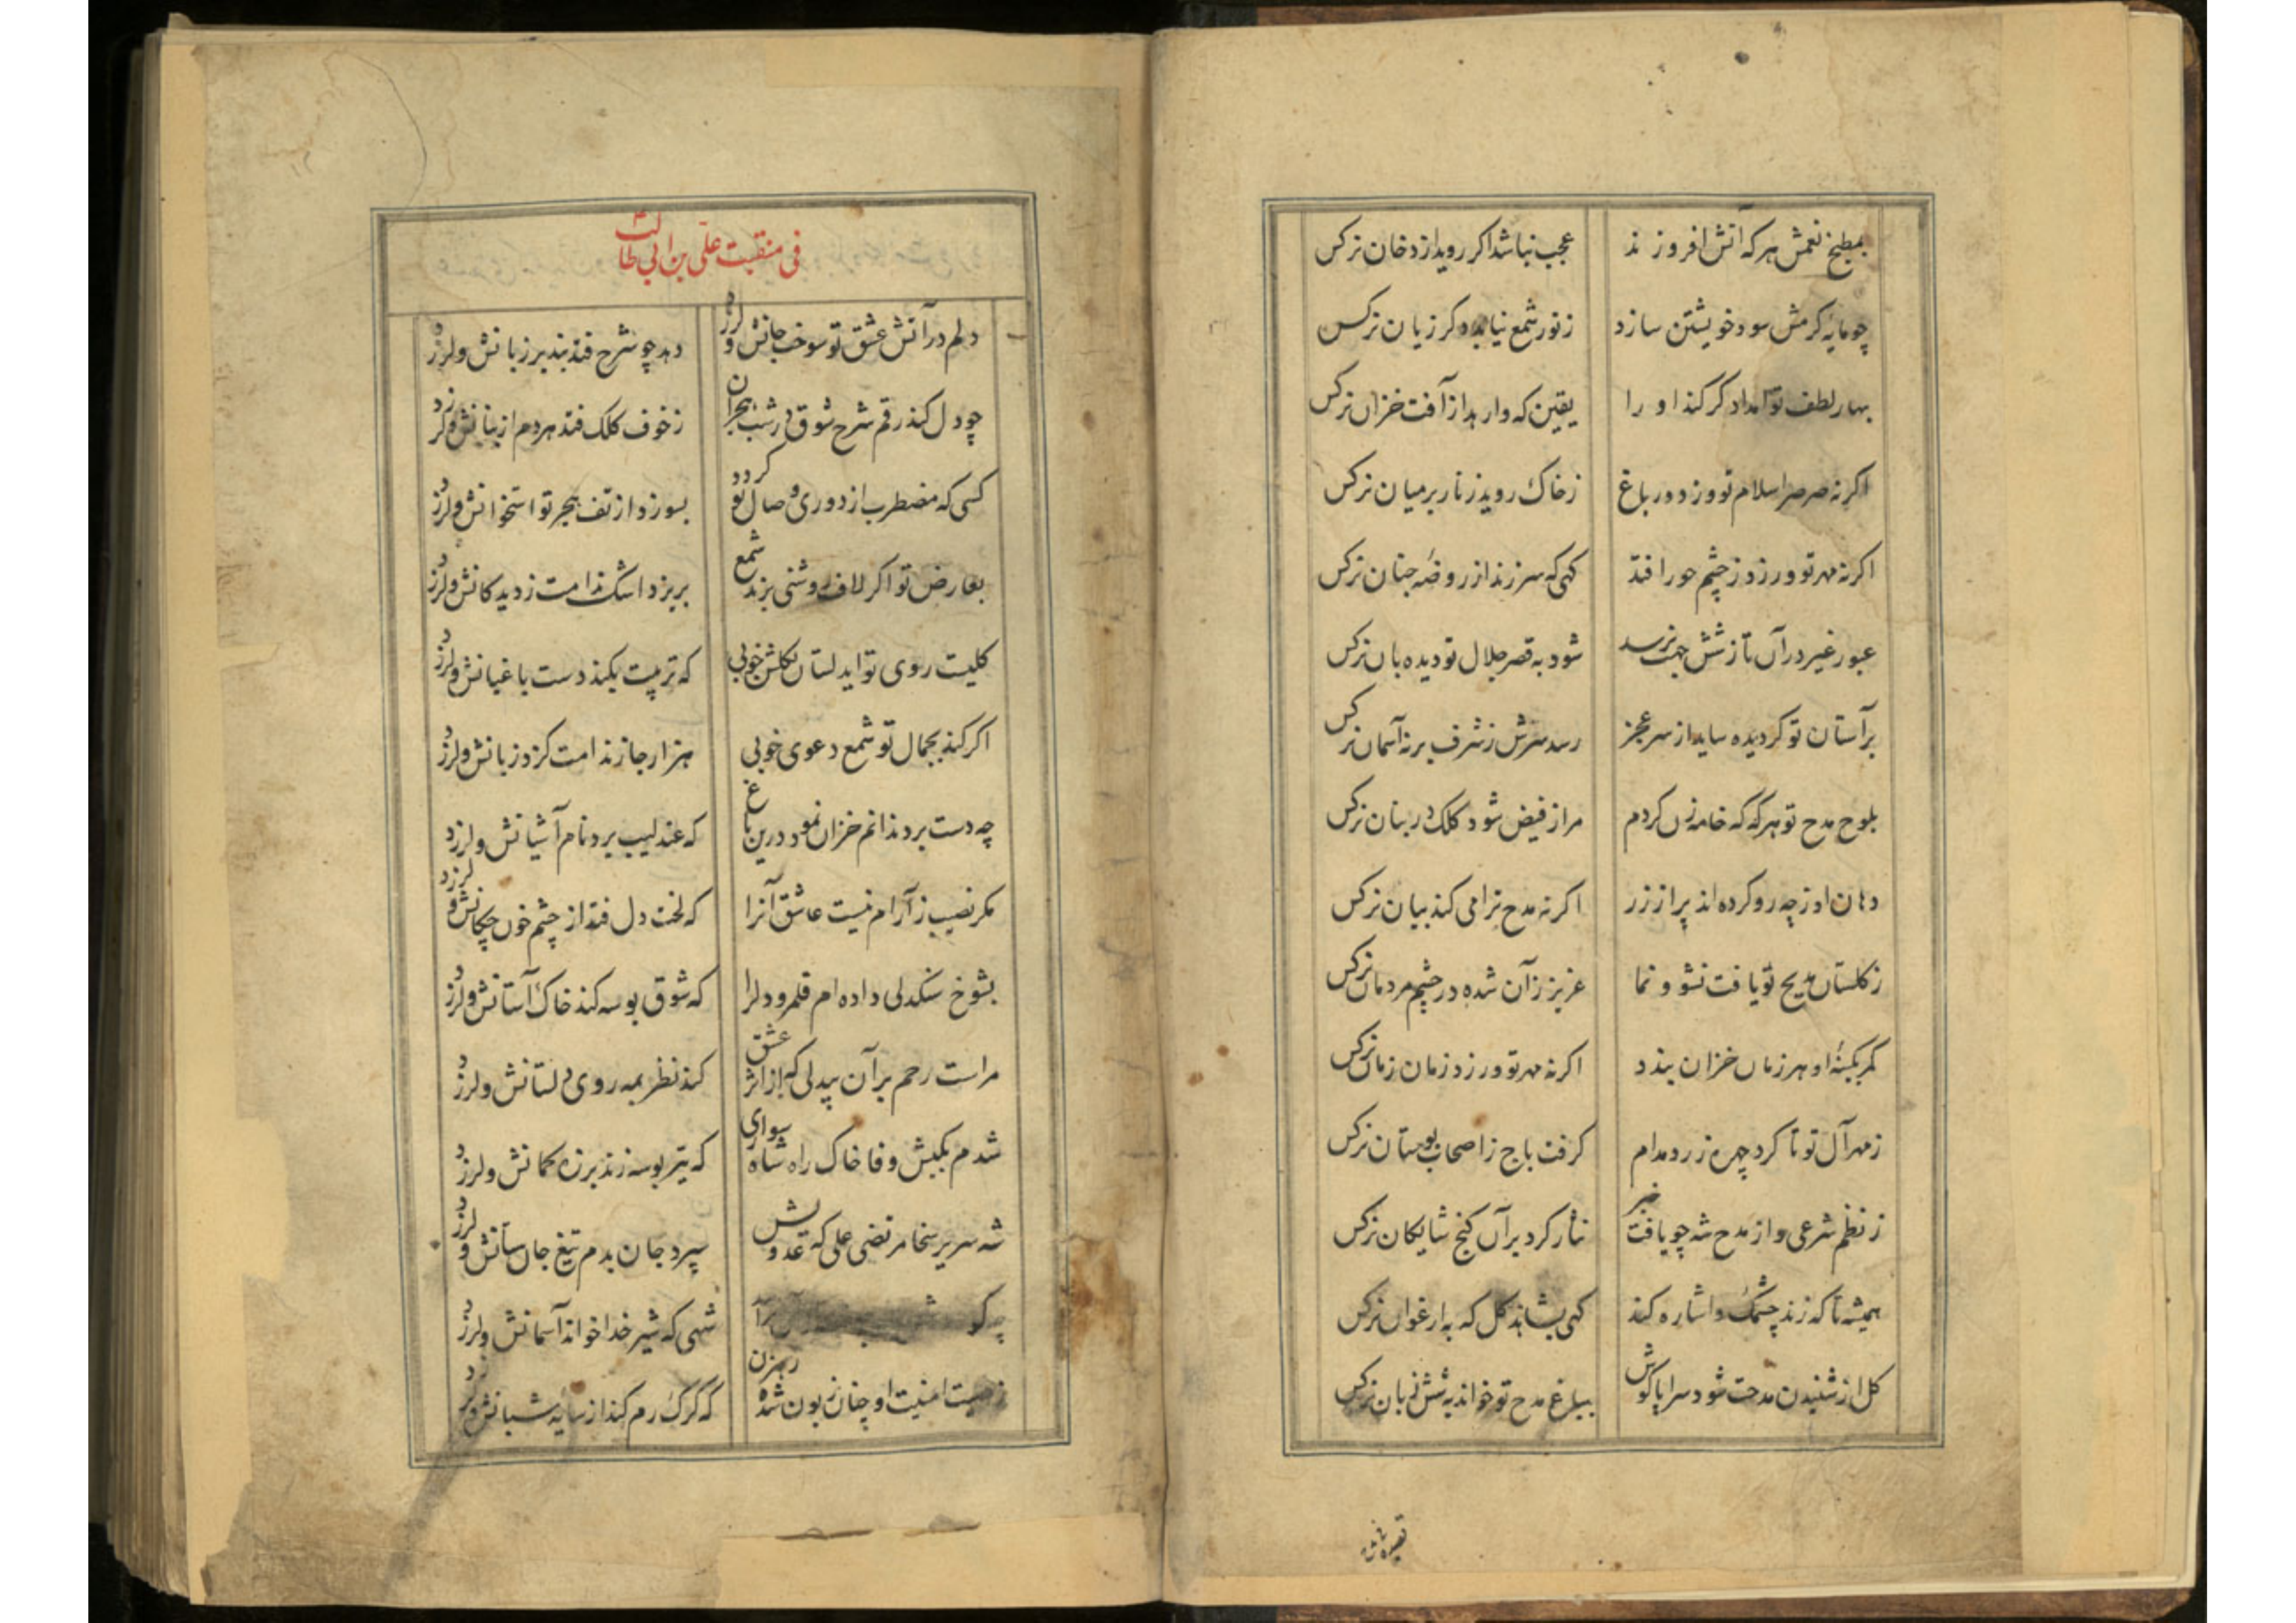 بمطبخ نعمش هر که آتش افروزند عجب نباشد اکر روید از دخان نرکس
چو مایهٔ کرمش سود خویشتن سازد ز نور شمع نیابد دکر زیان نرکس
بهار لطف تو امداد کر کند او را یقین که وارهد از آفت خزان نرکس
اکر نه صرصر اسلام تو وزد در باغ ز خاک روید زنار بر میان نرکس
اکر نه مهر تو ورزد ز چشم حور افتد کهی که سر زند از روضه جنان نرکس
عبور غیر در آن تا ز شش جهت نرسد شود به قصر جلال تو دیده بان نرکس
بر آستان تو کردیده ساید از سر عجز رسد سرش ز شرف بر نه آسمان نرکس
بلوح مدح تو هر که که خامه زن کردم مرا ز فیض شود کلک در بنان نرکس
دهان او ز چه رو کرده اند پر از زر اکر نه مدح ترا می کند بیان نرکس
ز کلستان مدیح تو یافت نشو و نما عزیز زآن شده در چشم مردمان نرکس
کمر بکینهٔ او هر زمان خزان بندد اکر نه مهر تو ورزد زمان زمان نرکس
ز مهر آل تو تا کرد چهره زرد مدام کرفت باج ز اصحاب بوستان نرکس
ز نظم شرعی و از مدح شه چو یافت خبر نثار کرد بر آن کنج شایکان نرکس
همیشه تا که زند چشمک و اشاره کند کهی بشاهد کل که به ارغوان نرکس
کل از شنیدن مدحت شود سراپا کوش ببلبل مدح تو خواند به شش زبان نرکس
فی منقبت علی بن ابی طالب
دلم در آتش عشق تو سوخت جانش و لرزد دهد چو شرح فتد بند بر زبانش و لرزد
چو دل کند رقم شرح شوق در شب هجران ز خوف کلک فتد هر دم از بنانش و لرزد
کسی که مضطرب از دوری وصال تو کردد بسوزد از تف هجر تو استخوانش و لرزد
بعارض تو اکر لاف روشنی بزند شمع بریزد اشک ندامت ز دیدکانش و لرزد
کلیست روی تو ای دلستان بکلشن خوبی که تربیت بکند دست باغبانش و لرزد
اکر کند بجمال تو شمع دعوی خوبی هزار جا ز ندامت کزد زبانش و لرزد
چه دست برد ندانم خزان نمود درین باغ که عندلیب برد نام آشیانش و لرزد
مکر نصیب ز آرام نیست عاشق آنرا که لخت دل فتد از چشم خون چکانش و لرزد
بشوخ سنکدلی داده ام قلمرو دلرا که شوق بوسه کند خاک آستانش و لرزد
مراست رحم بر آن بیدلی که از اثر عشق کند نظر بمه روی دلستانش و لرزد
شدم بکیش وفا خاک راه شاه سواری که تیر بوسه زند بر زه کمانش و لرزد
شه سریر سخا مرتضی علی که عدویش سپرد جان بدم تیغ جان ستانش و لرزد
شهی که شیر خدا خواند آسمانش و لرزد
ز هیبت امنیت او چنان زبون شده رهزن که کرک رم کند از سایه شبانش و لرزد